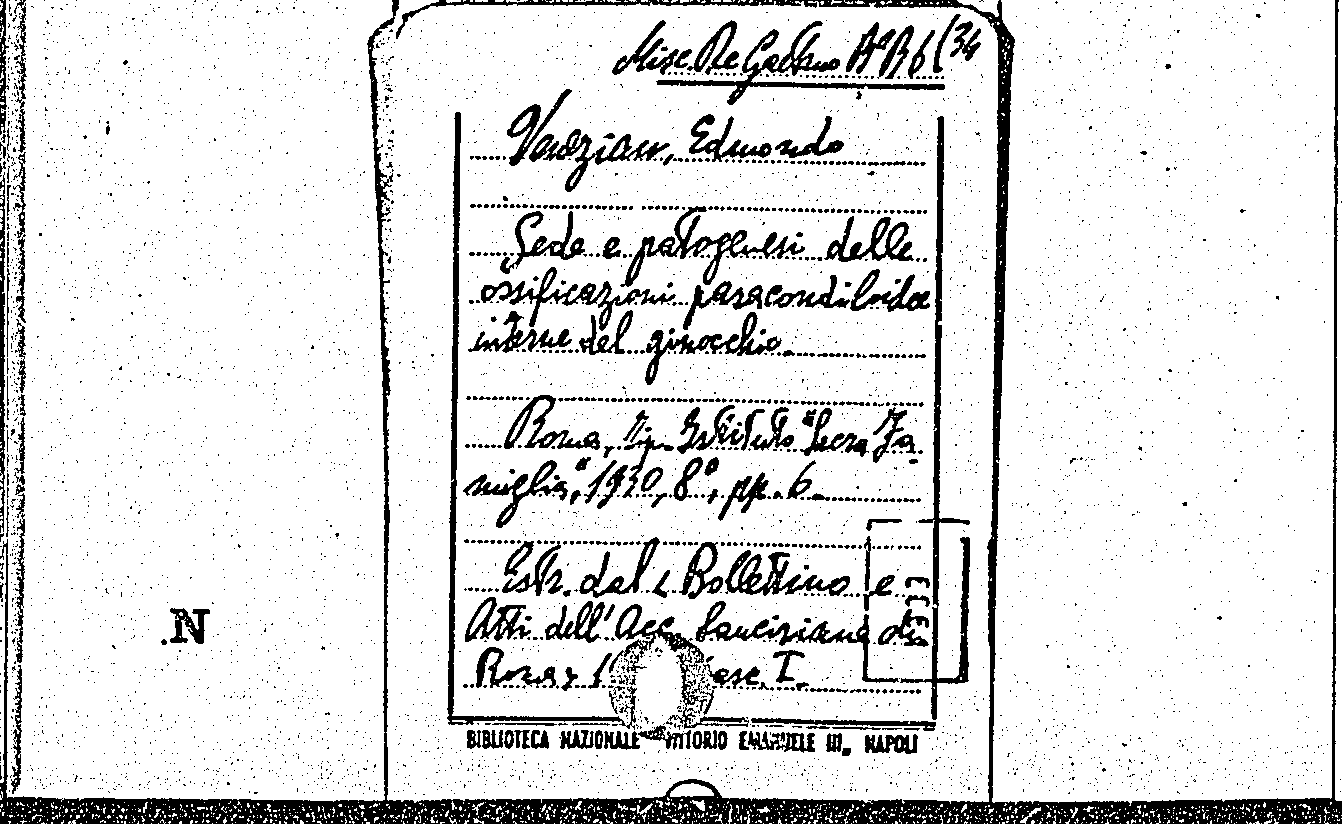 Misc. De Gaetano B B 6 (34
Veneziani, Edmondo
Sede e patogenesi delle
ossificazioni paracondiloidee
interne del ginocchio.
Roma, Tip. Istituto "Sacra Fa-
miglia", 1930, 8°, pp. 6.
Estr. dal « Bollettino e
Atti dell'Acc. Lancisiana di
Roma»
fasc. I.
BIBLIOTECA NAZIONALE VITTORIO EMANUELE III„ NAPOLI
.N